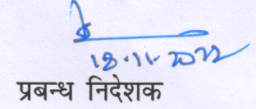 18.11.2022
प्रबन्ध निदेशक